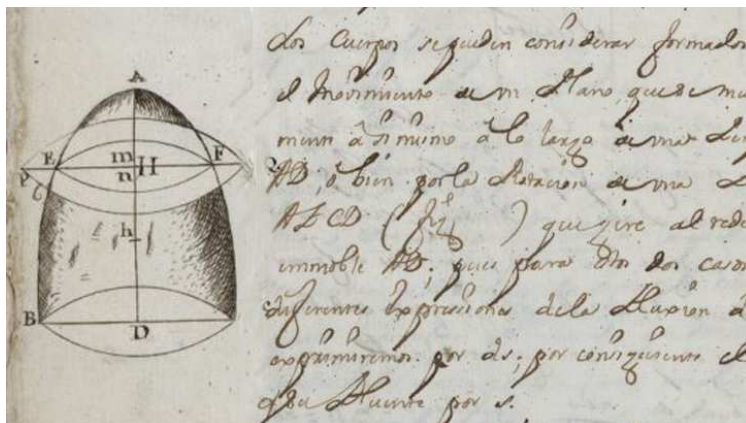 A
E
m
H
F
n
P
h
B
D
Los Cuerpos se pueden considerar formados
el Movimiento de un Plano, que se mu
mem a si mismo a lo largo de una Lin
AD, ó bien por la Rotacion de una
ABCD ( ) que gire al rede
immoble AD; pues para dos casos
diferentes expressiones de la Fluxion
exprimiremos por ds; por consiguiente el
Fluente por s.